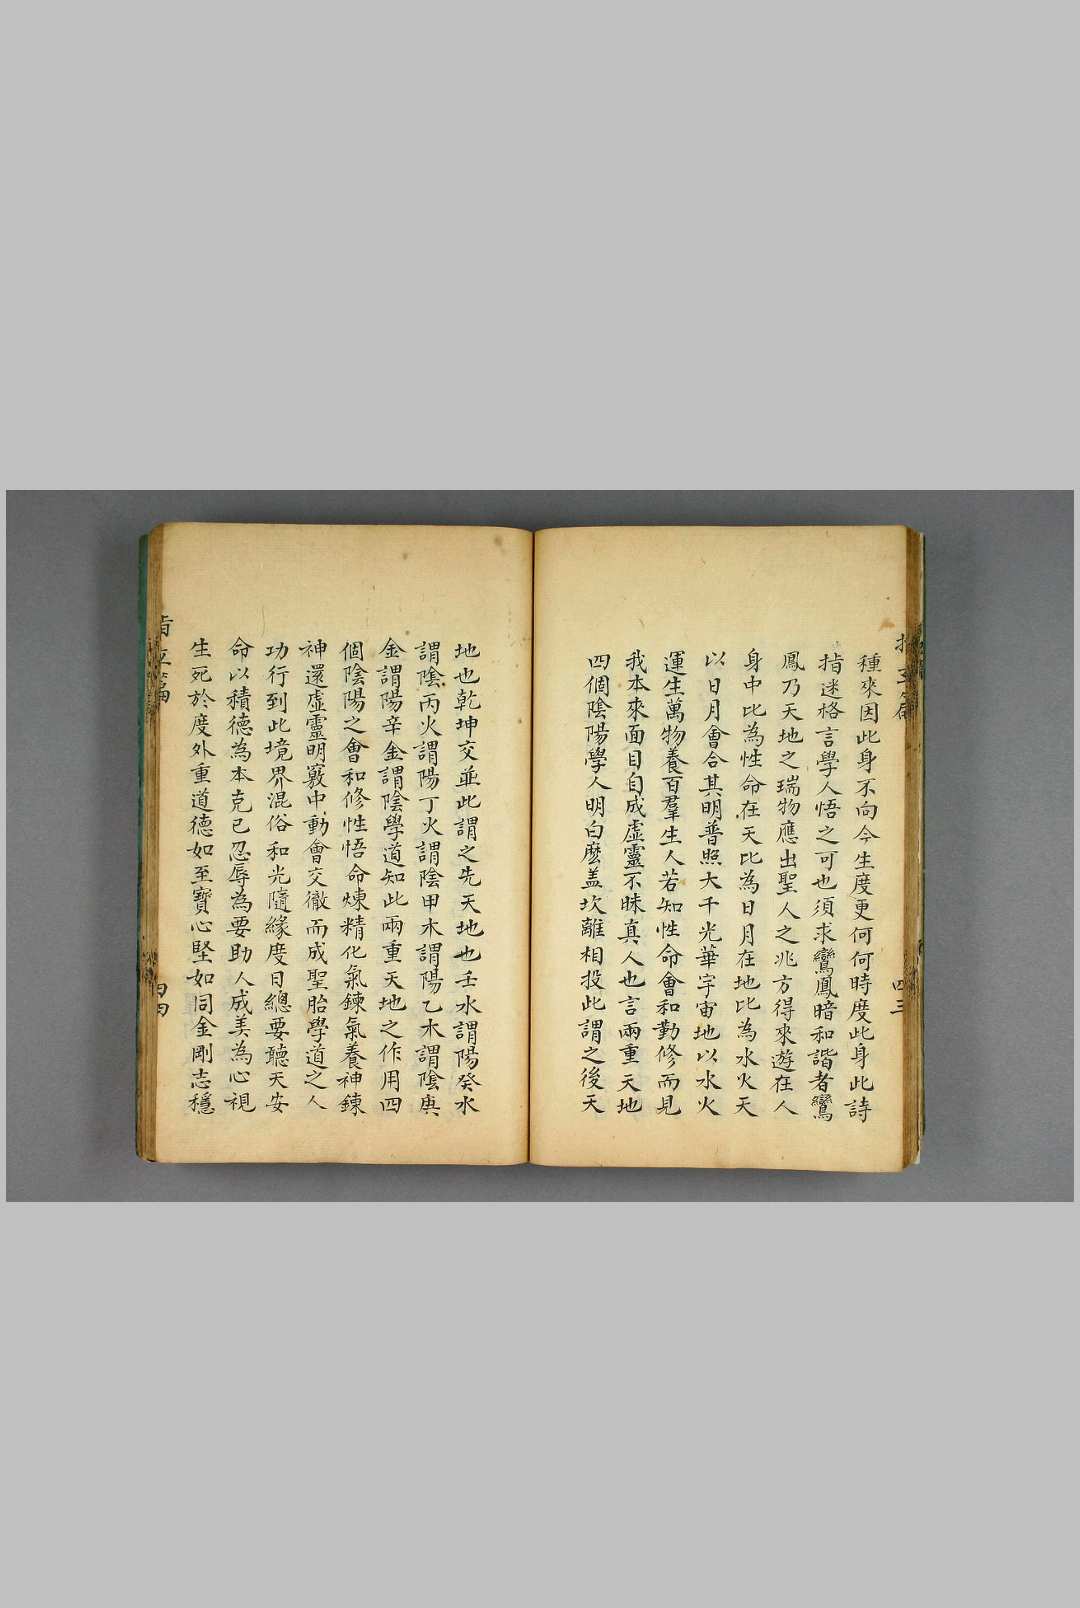 種來因此身不向今生度更何何時度此身此詩
指迷格言學人悟之可也須求鸞鳳暗和諧者鸞
鳳乃天地之瑞物應出聖人之兆方得來遊在人
身中比為性命在天比為日月在地比為水火天
以日月會合其明普照大千光華宇宙地以水火
運生萬物養百羣生人若知性命會和勤修而見
我本來面目自成虛靈不昧真人也言兩重天地
四個陰陽學人明白麼盖坎離相投此謂之後天
四三
地也乾坤交並此謂之先天地也壬水謂陽癸水
謂陰丙火謂陽丁火謂陰甲木謂陽乙木謂陰庚
金謂陽辛金謂陰學道知此兩重天地之作用四
個陰陽之會和修性悟命煉精化氣鍊氣養神鍊
神還虛靈明竅中動會交徹而成聖胎學道之人
功行到此境界混俗和光隨緣度日總要聽天安
命以積德為本克己忍辱為要助人成美為心視
生死於度外重道德如至寶心堅如同金剛志穩
四四